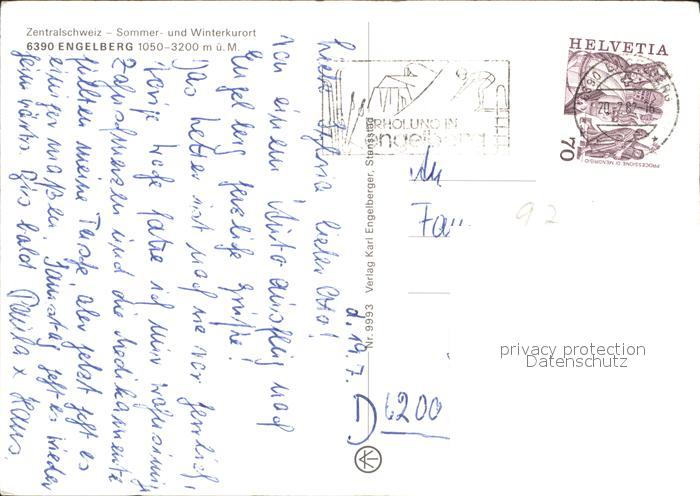 Zentralschweiz – Sommer- und Winterkurort
6390 ENGELBERG 1050–3200 m ü. M.
d. 19. 7.
Liebe Sylvia lieber Otto!
Von einem Autoausflug nach
Engelberg herzliche Grüße!
Das Wetter ist nach wie vor herrlich,
vorige Woche hatte ich nur
Zahnschmerzen und die Medikamente
füllten meine Tasche aber jetzt geht es
einigermaßen. Samstag geht es wieder
heimwärts. Bis bald Paula x Hans.
Nr. 9993 Verlag Karl Engelberger, Stansstad
ERHOLUNG IN
engelberg
HELVETIA
70
PROCESSIONE D. MENDRISIO
An
Fa
92
D 6200
privacy protection
Datenschutz